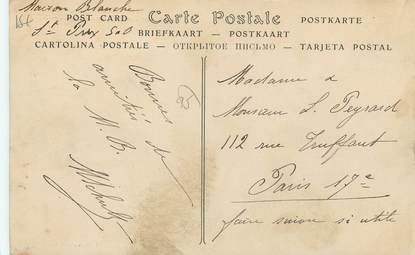 Maison Blanche
St Prix S&O
POST CARD Carte Postale POSTKARTE
BRIEFKAART — POSTKAART
CARTOLINA POSTALE — ОТКРЫТОЕ ПИСЬМО — TARJETA POSTAL
Bonnes
amitiés de
la M. B.
Madame &
Monsieur L. Peyrard
112 rue Truffaut
Paris 17e
faire suivre si utile